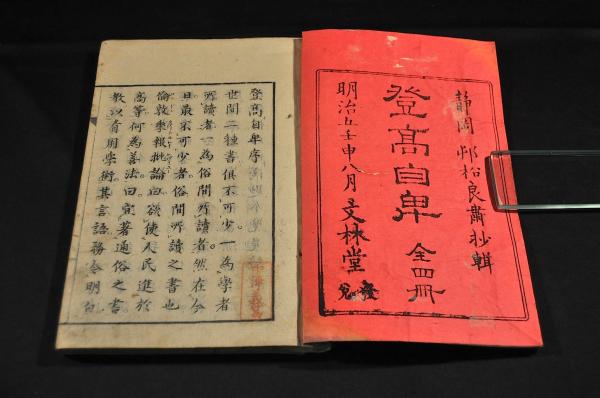 靜岡 邨松良肅抄輯
登髙自卑 全四冊
明治五壬申八月 文林堂 發兌
登髙自卑序
世間二種書俱不可少一為學者
所讀者一為俗間所讀者然在今
日最不可少者俗間所讀之書也
倫敦報批論曰欲使人民進於
高等何為善法曰宜著通俗之書
教以有用學術其言語務令明白